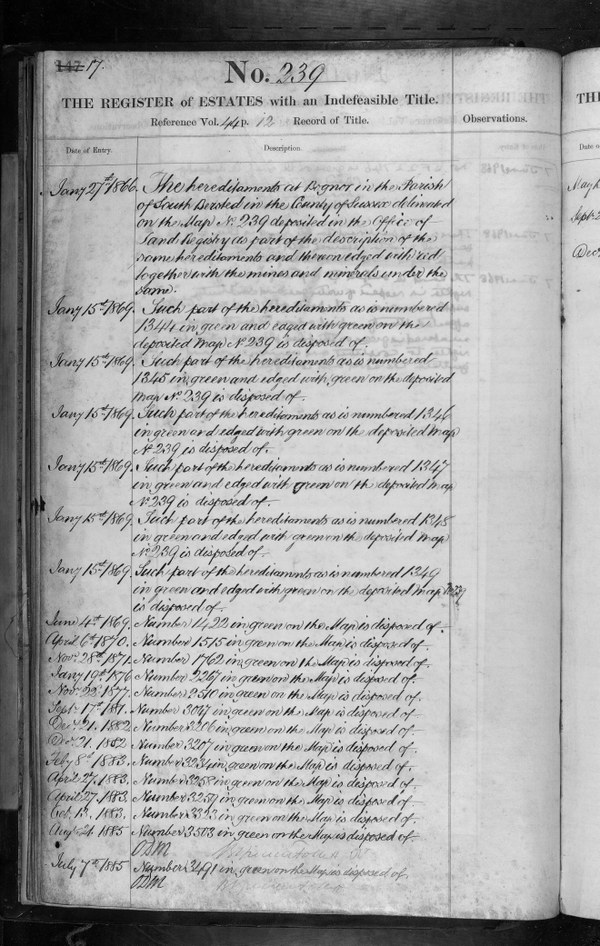 147 17.
No. 239
THE REGISTER of ESTATES with an Indefeasible Title.
Reference Vol. 44 p. 12 Record of Title.
Observations.
Date of Entry.
Description.
Jany 27th 1866. The hereditaments at Bognor in the Parish
of South Bersted in the County of Sussex delineated
on the Map No. 239 deposited in the Office of
Land Registry as part of the description of the
same hereditaments and thereon edged with red
together with the mines and minerals under the
same.
Jany 15th 1869. Such part of the hereditaments as is numbered
1344 in green and edged with green on the
deposited Map No. 239 is disposed of.
Jany 15th 1869. Such part of the hereditaments as is numbered
1345 in green and edged with green on the deposited
Map No. 239 is disposed of.
Jany 15th 1869. Such part of the hereditaments as is numbered 1346
in green and edged with green on the deposited Map
No. 239 is disposed of.
Jany 15th 1869. Such part of the hereditaments as is numbered 1347
in green and edged with green on the deposited Map
No. 239 is disposed of.
Jany 15th 1869. Such part of the hereditaments as is numbered 1348
in green and edged with green on the deposited Map
No. 239 is disposed of.
Jany 15th 1869. Such part of the hereditaments as is numbered 1349
in green and edged with green on the deposited Map No 239
is disposed of.
June 4th 1869. Number 1422 in green on the Map is disposed of.
April 6th 1870. Number 1515 in green on the Map is disposed of.
Novr. 28th 1871. Number 1762 in green on the Map is disposed of.
Jany 19th 1876 Number 2267 in green on the Map is disposed of.
Novr. 22nd 1877. Number 2510 in green on the Map is disposed of.
Septr. 17th 1881. Number 3047 in green on the Map is disposed of
Decr. 21. 1882 Number 3206 in green on the Map is disposed of
Decr. 21. 1882 Number 3207 in green on the Map is disposed of.
Feby 8th 1883. Number 3231 in green on the Map is disposed of
April 27. 1883. Number 3258 in green on the Map is disposed of
April 27. 1883. Number 3257 in green on the Map is disposed of
Oct. 13. 1883. Number 3323 in green on the Map is disposed of
Augt 21 1885 Number 3503 in green on the Map is disposed of
ODM
July 7th 1885 Number 3491 in green on the Map is disposed of
ODM